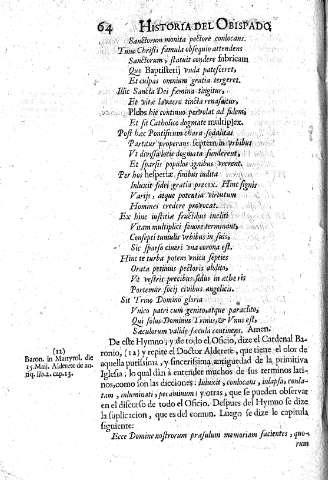 64 HISTORIA DEL OBISPADO,
Sanctorum monita pectore conlocans.
Tunc Christi famula obsequio attendens
Sanctorum, statuit condere fabricam
Quo Baptisterij unda patesceret,
Et culpas omnium gratia tergeret.
Illic Sancta Dei fœmina tingitur,
Et vitæ lavacro tincta renascitur,
Plebs hic continuo pervolat ad fidem,
Et fit Catholico dogmate multiplex.
Post hæc Pontificum chara sodalitas
Partitur properans septem in urbibus
Ut divisis dogmata funderent,
Et sparsis populos ignibus urerent.
Per hos hesperiæ finibus indita
Inluxit fidei gratia Hinc signis
Varijs, atque potentia virtutum
Homines credere provocat.
Ex hinc iustitiæ fructibus incliti
Vitam multiplici fœnore terminant,
Consepti tumulis urbibus in suis
Sic sparso cineri una corona est.
Hinc te turba potens unica septies
Orata petimus pectoris abdito,
Ut vestris precibus sidus in ætheris
Portemur socij civibus angelicis.
Sit Trino Domino gloria
Unico patri cum genito, atque paraclito,
Qui solus Dominus Trinus, & Unus est,
Sæculorum valide sæcula continens. Amen.
De este Hymno, y de todo el Oficio, dize el Cardenal Ba-
ronio, (12) y repite el Doctor Alderete, que tiene el olor de
aquella purissima, y sincerissima antiguedad de la primitiva
Iglesia, lo qual dàn à entender muchos de sus terminos lati-
nos, como son las dicciones: Inluxit, conlocans, inlapsa,
y otras, que se pueden observar
en el discurso de todo el Oficio. Despues del Hymno se dize
la suplicacion, que es del comun. Luego se dize la capitula
siguiente:
Ecce Domine nostrorum præsulum memoriam facientes, quo-
rum
(12)
Baron. in Martyrol. die
15. Maij. Alderete de an-
tiq. lib. 2. cap. 15.